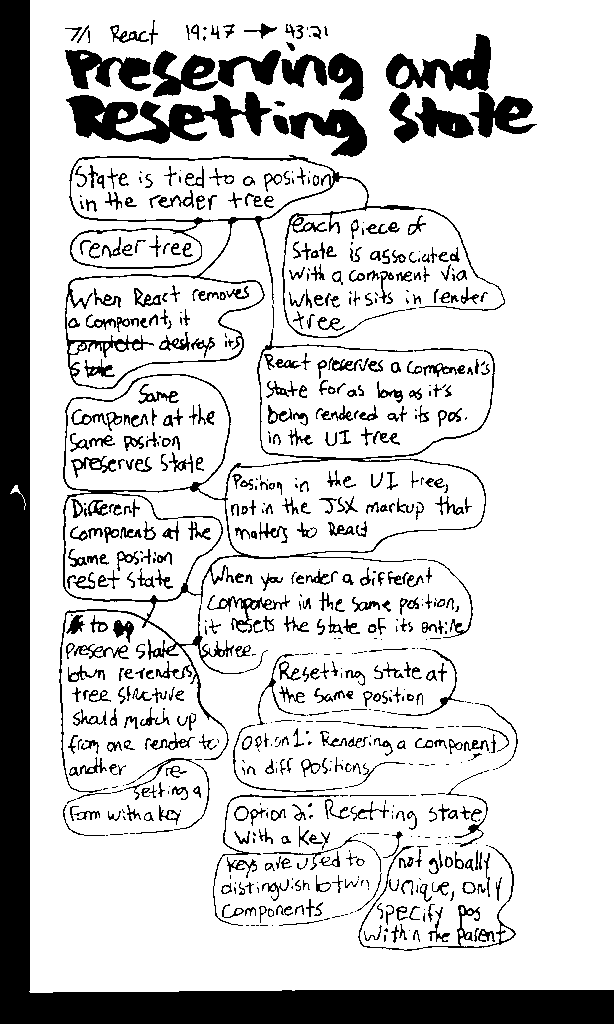 7/1 React 19:47 → 43:21
Preserving and
Resetting State
State is tied to a position
in the render tree
render tree
each piece of
State is associated
with a component via
where it sits in render
tree
When React removes
a component, it
destroys its
state
React preserves a component's
state for as long as it's
being rendered at its pos.
in the UI tree
Same
Component at the
same position
preserves state
Position in the UI tree,
not in the JSX markup that
matters to React
Different
Components at the
same position
reset state
When you render a different
component in the same position,
it resets the state of its entire
subtree
to
preserve state
btwn re-renders,
tree structure
should match up
from one render to
another
Resetting state at
the same position
Option 1: Rendering a component
in diff positions
re-
setting a
Form with a key
Option 2: Resetting state
with a key
keys are used to
distinguish btwn
Components
not globally
unique, only
specify pos
within the parent